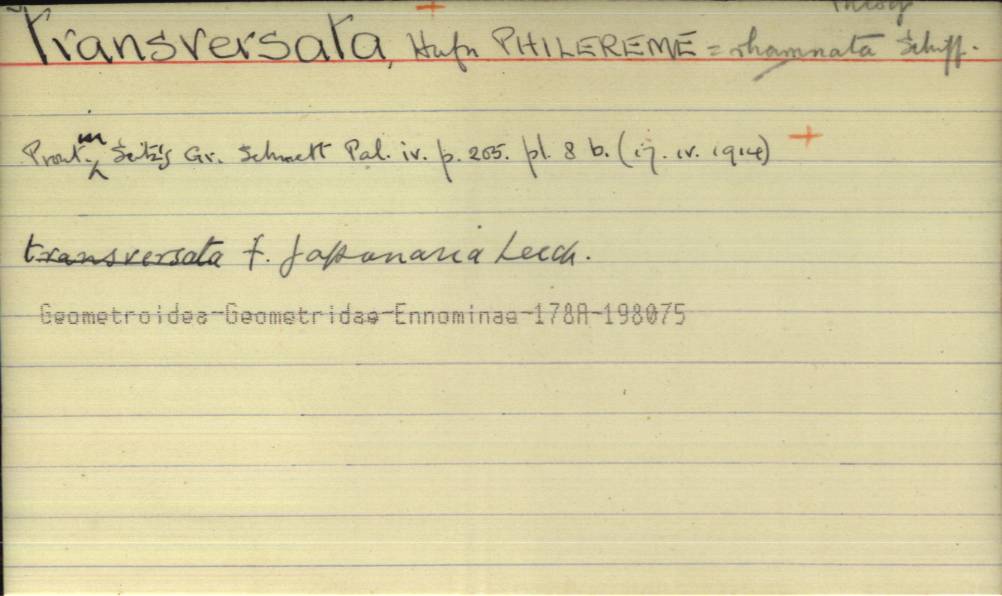 Transversata, Hufn PHILEREME = rhamnata Schiff.
Prout in Seitz's Gr. Schmett Pal. iv. p. 205. pl. 8 b. (ij. iv. 1914)
transversata f. japanaria Leech.
Geometroidea-Geometridae-Ennominae-178A-198075